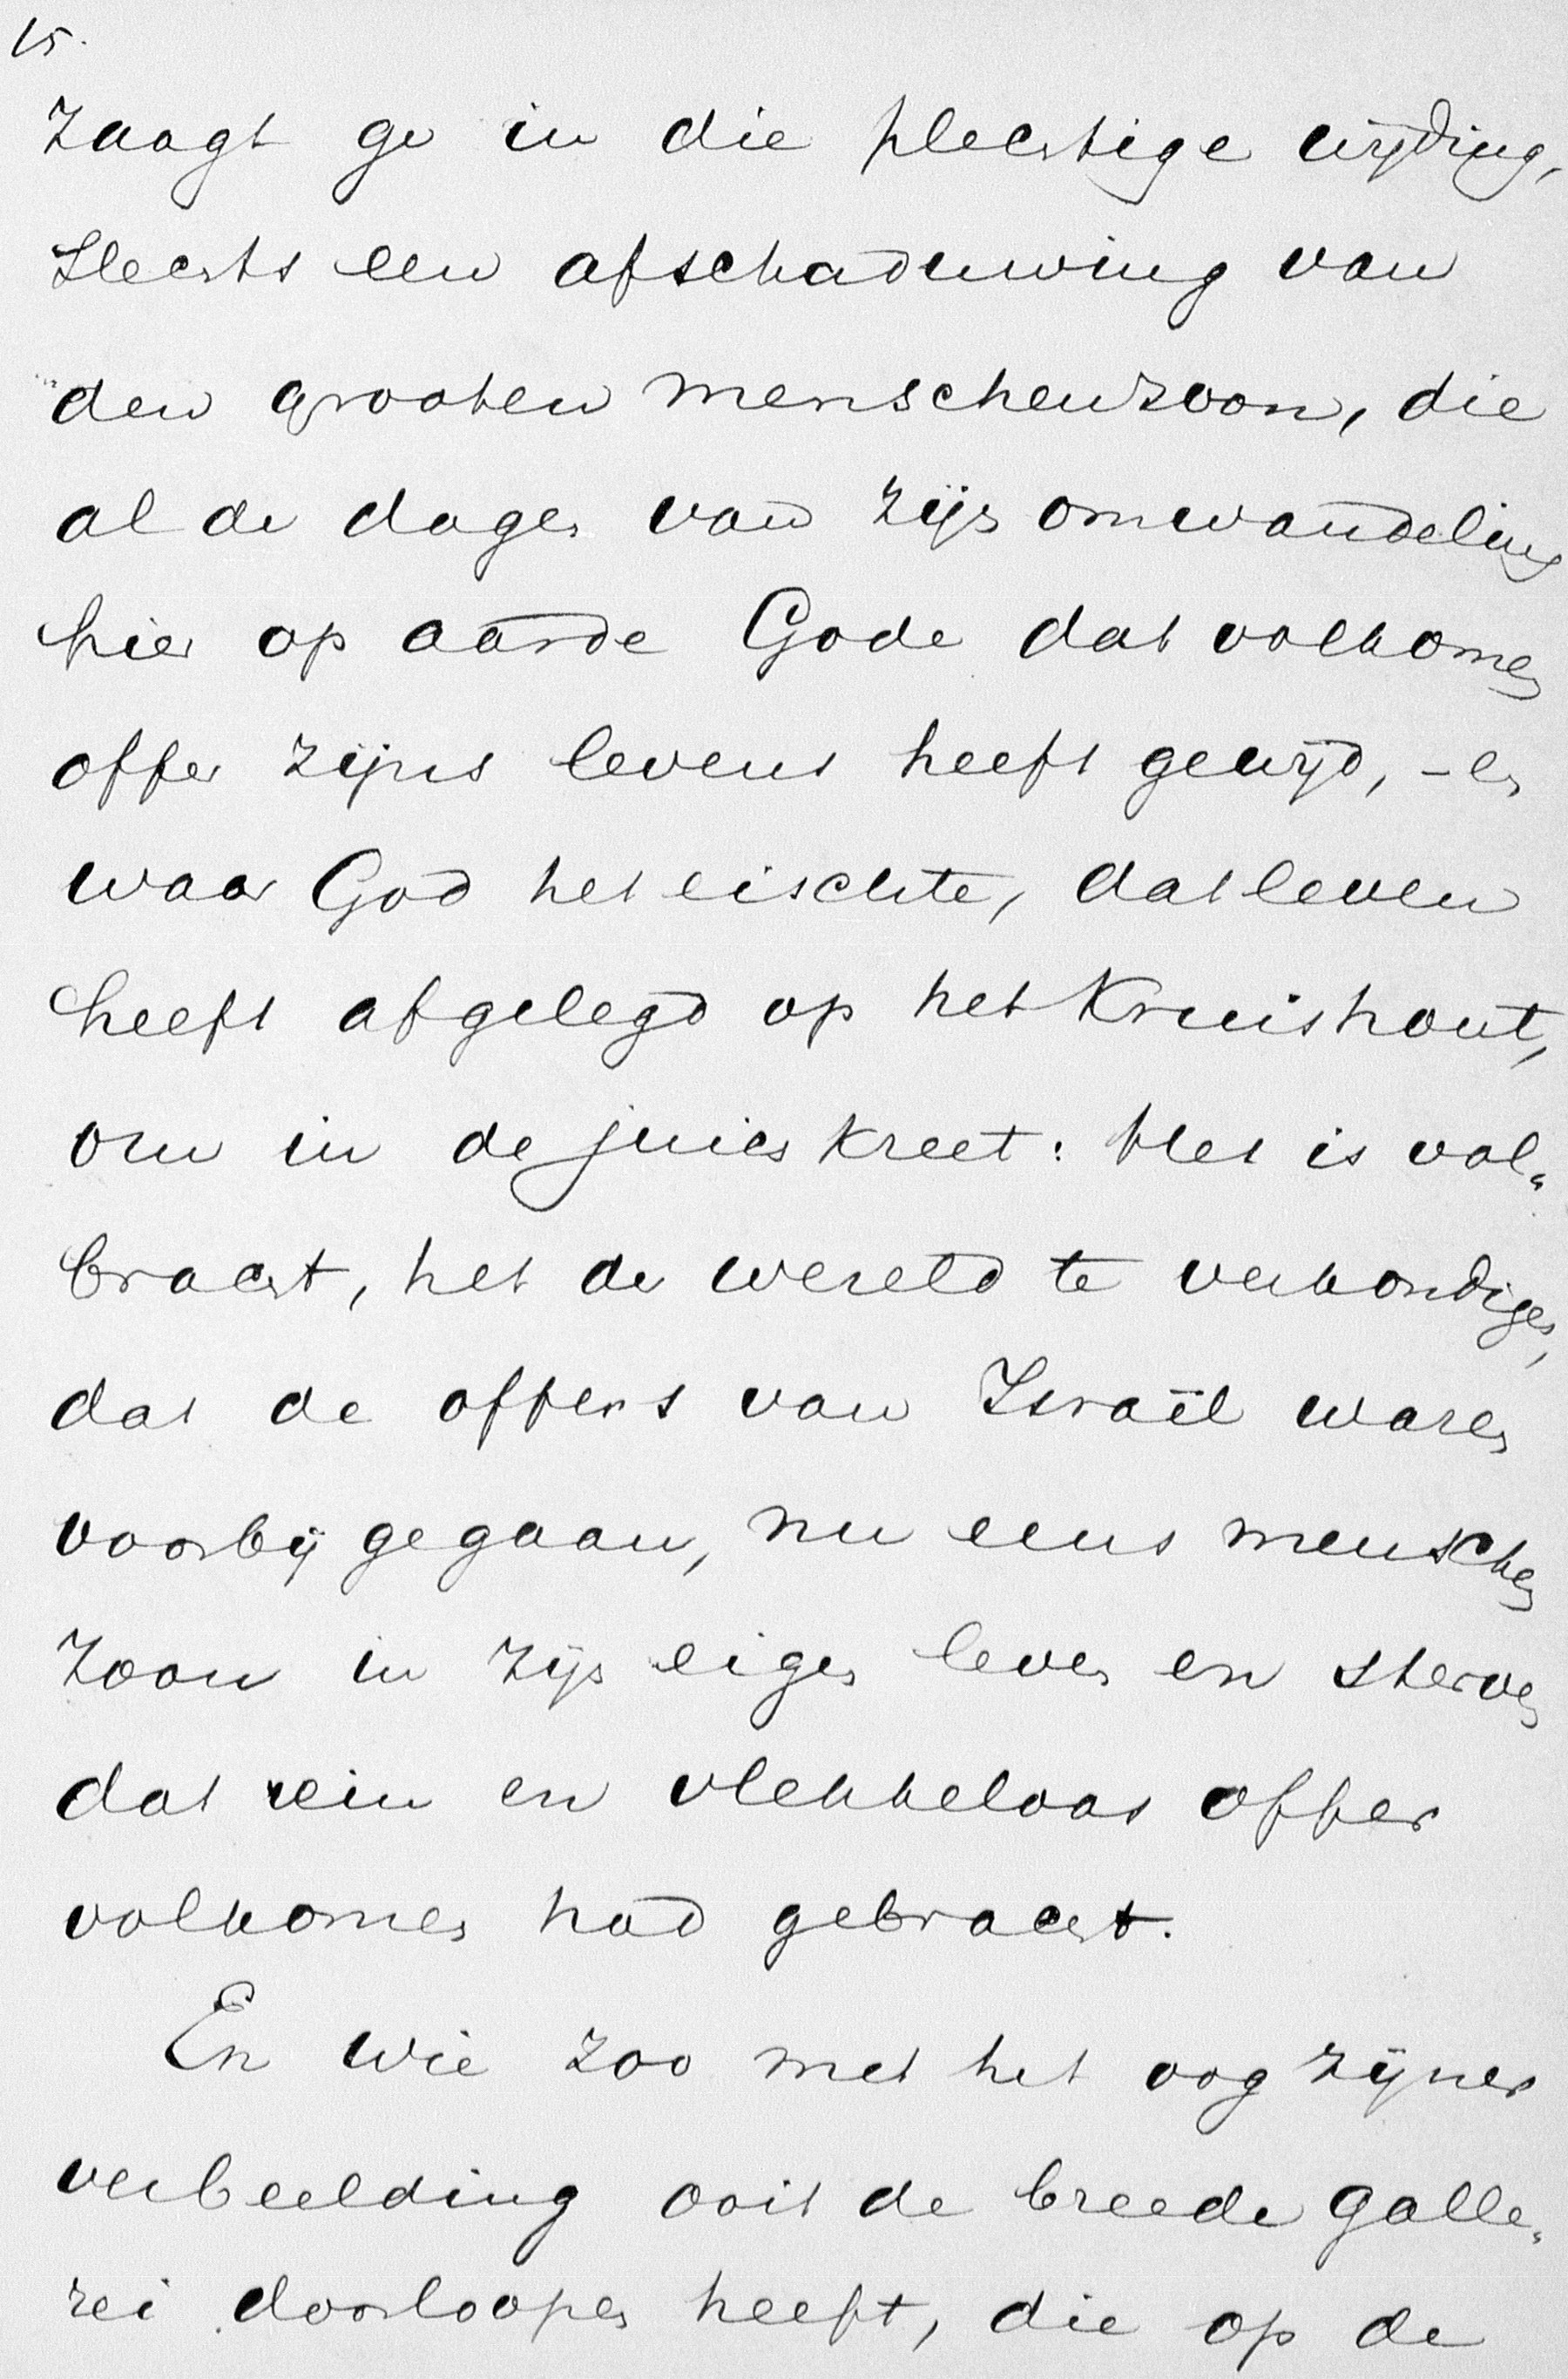 15.
Zaagt ge in die plechtige wijding,
slechts een afschaduwing van
den grooten menschenzoon, die
al de dagen van zijn omwandeling
hier op aarde Gode dat volkomen
offer zijns levens heeft gewijd, – en
waar God het eischte, dat leven
heeft afgelegd op het Kruishout,
om in de juichkreet: Het is vol„
bracht, het de wereld te verkondigen,
dat de offers van Israël waren
voorbij gegaan, nu eens menschen
zoon in zijn eigen leven en sterven
dat rein en vlekkeloos offer
volkomen had gebracht.
En wie zoo met het oog zijner
verbeelding ooit de breede galle„
rei doorloopen heeft, die op de